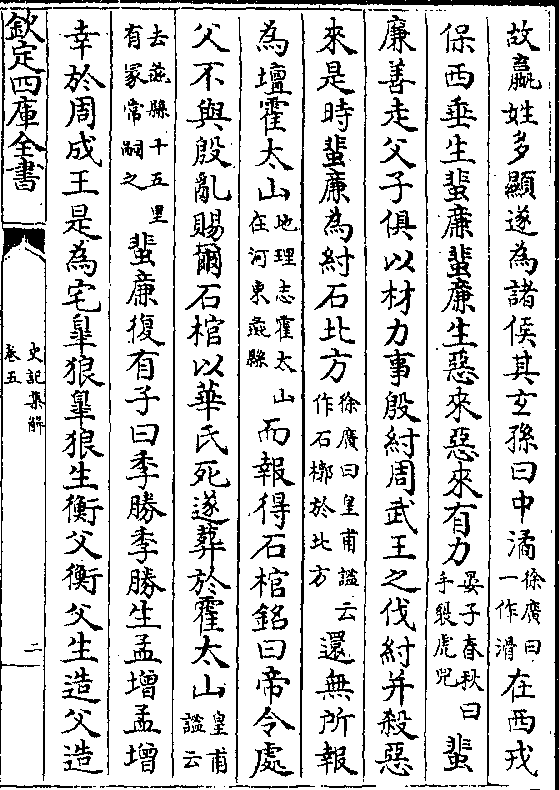 故嬴姓多顯遂為諸侯其玄孫曰中潏徐廣曰一作滑在西戎
保西垂生蜚廉蜚廉生惡來惡來有力晏子春秋曰手裂虎兕蜚
廉善走父子俱以材力事殷紂周武王之伐紂并殺惡
來是時蜚廉為紂石北方徐廣曰皇甫謐云作石槨於北方還無所報
為壇霍太山地理志霍太山在河東彘縣而報得石棺銘曰帝令處
父不與殷亂賜爾石棺以華氏死遂葬於霍太山皇甫謐云
去彘縣十五里有冢常嗣之蜚廉復有子曰季勝季勝生孟增孟增
幸於周成王是為宅臯狼臯狼生衡父衡父生造父造
欽定四庫全書
史記集解
卷五
二